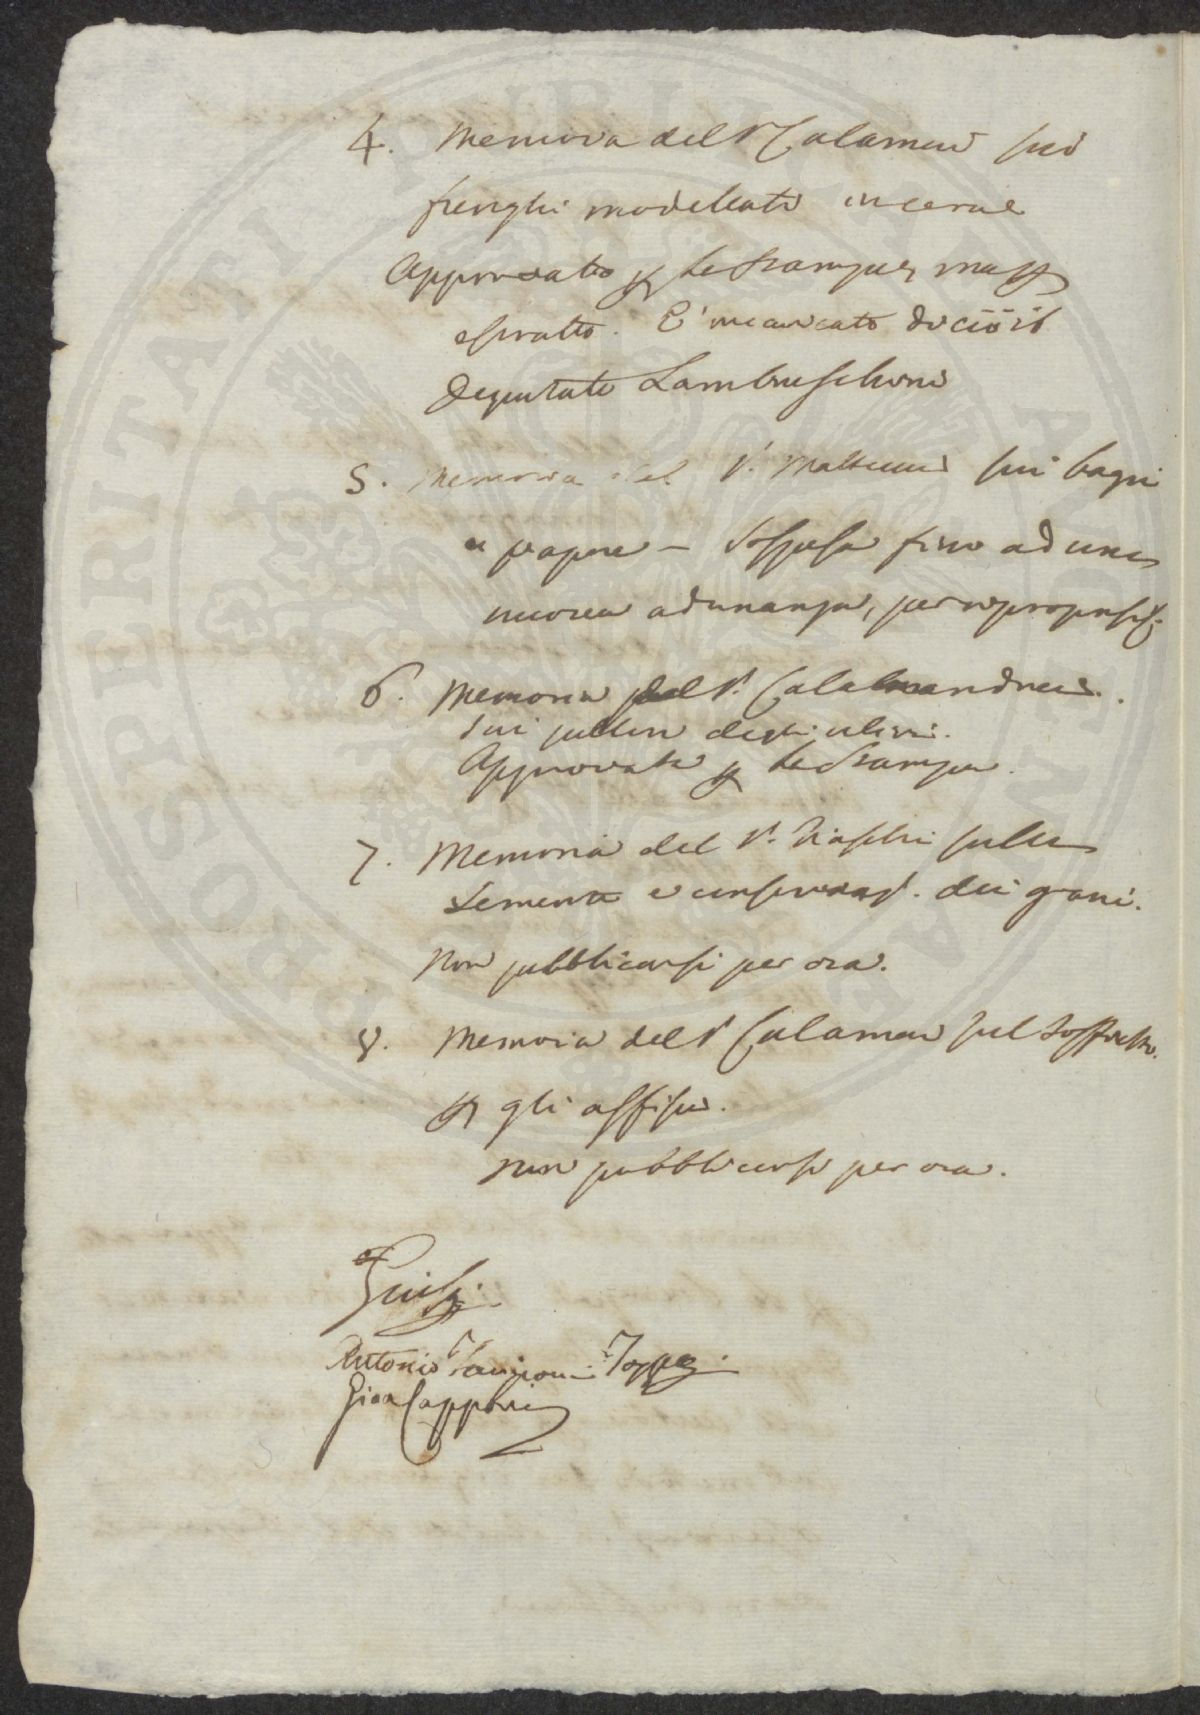 4. Memoria del Sr Calamai sui
funghi modellati in cera
Approvata p la Stampa, ma p
estratto. E' incaricato di ciò il
Deputato Lambruschini
5. Memoria del Sr. Matteucci sui bagni
a vapore – Sospesa fino ad una
nuova adunanza, per riproporsi
6. Memoria del Sr. Calamandrei.
sui polloni degli ulivi.
Approvata p la Stampa.
7. Memoria del Sr. Fiaschi sulla
sementa e conservaz. dei grani.
Non pubblicarsi per ora.
8. Memoria del Sr Calamai sul
p gli affissi.
non pubblicarsi per ora.
Antonio Targioni-Tozzetti
Gino Capponi
PROSPERITATI PUBLICAE AUGENDAE